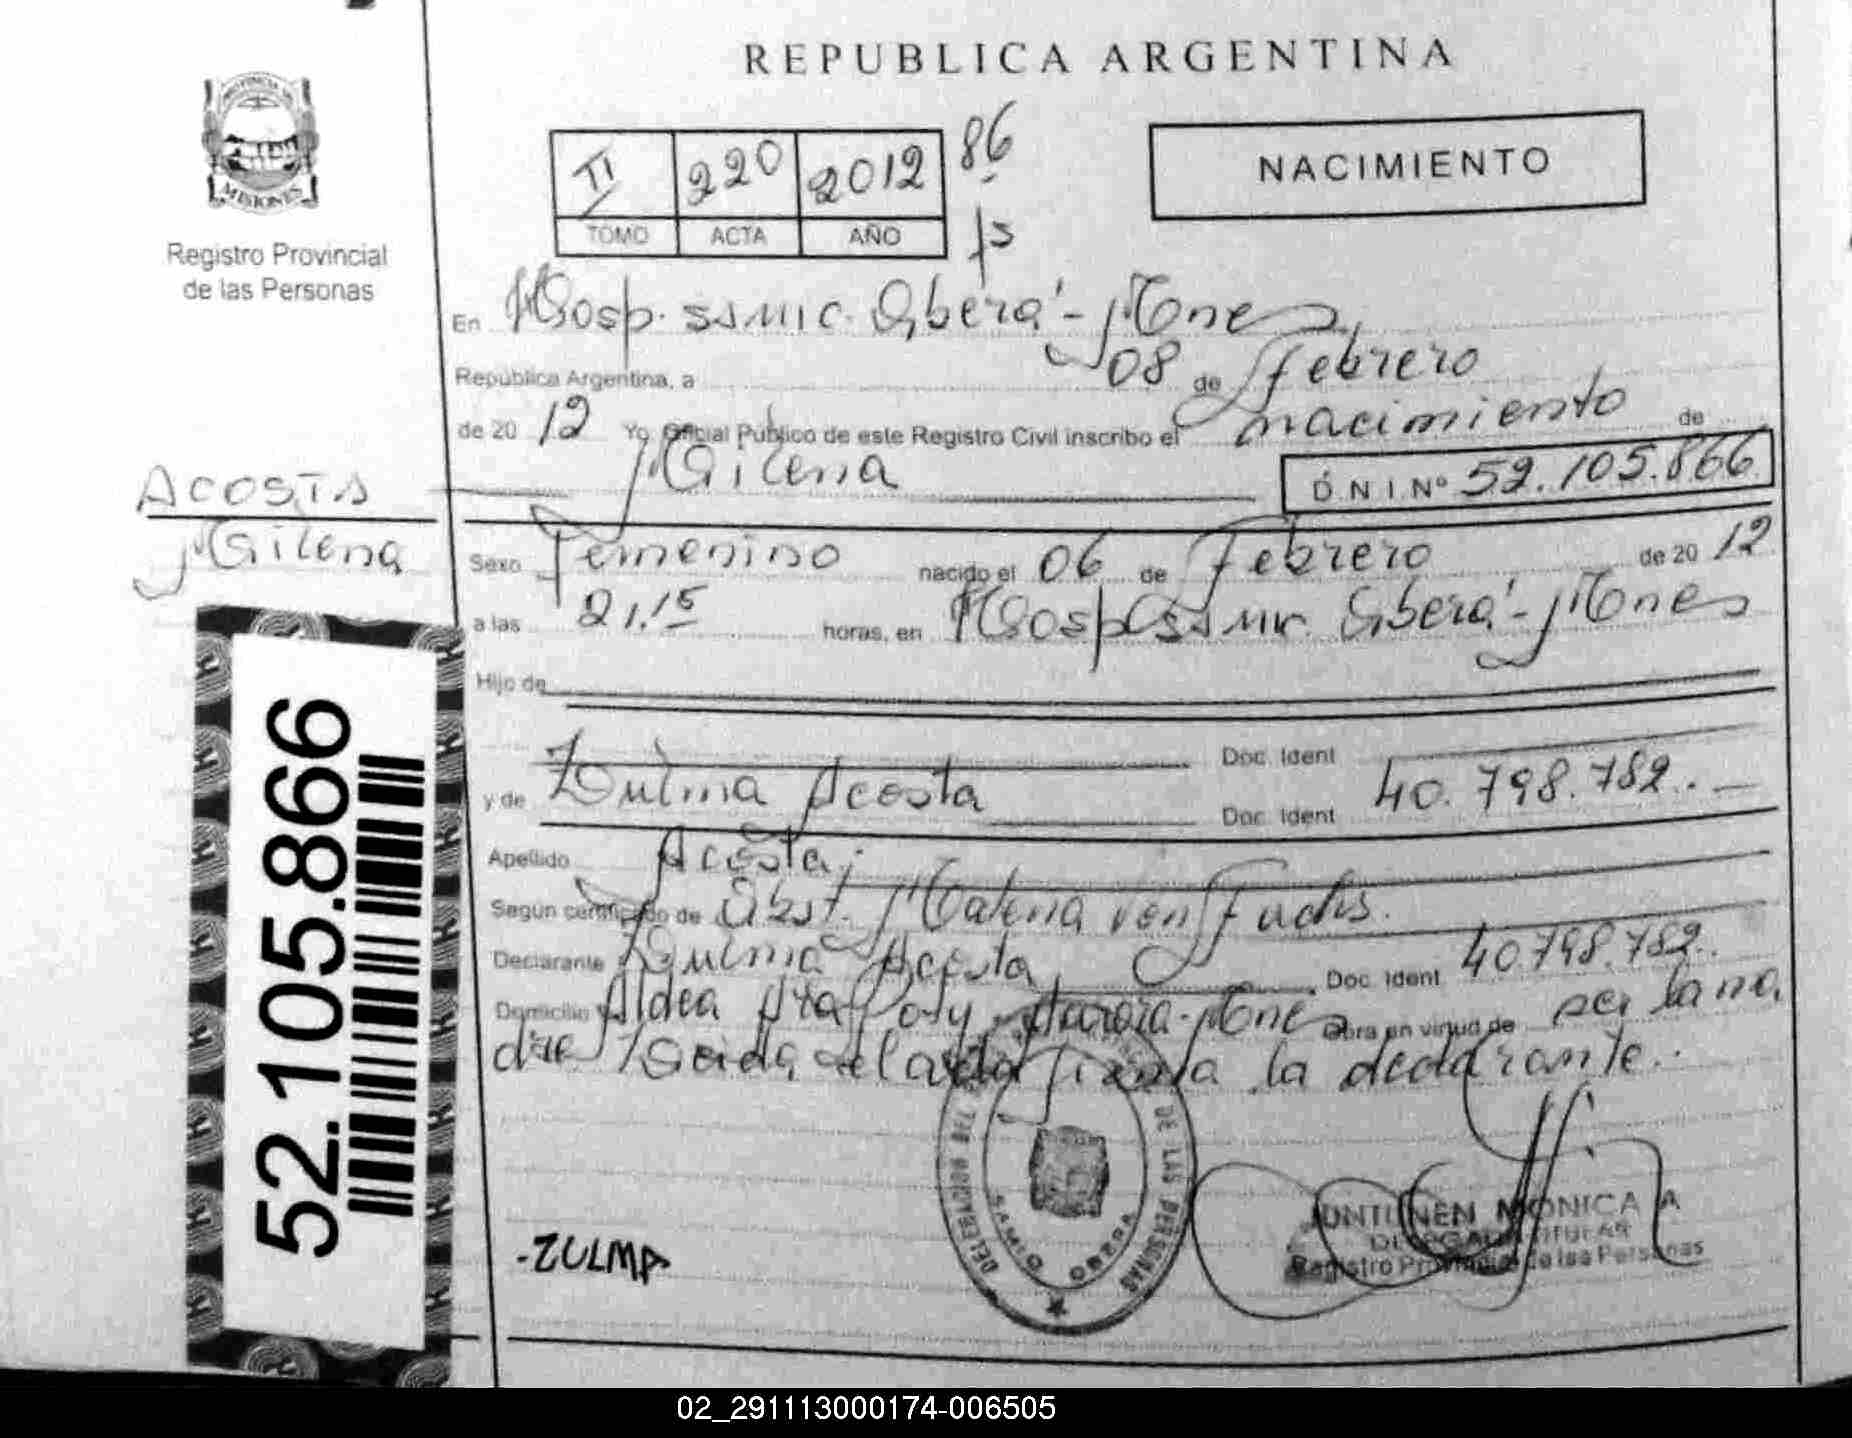 REPUBLICA ARGENTINA
PROVINCIA DE
MISIONES
Registro Provincial
de las Personas
II 220 2012 86
TOMO ACTA AÑO fs
NACIMIENTO
En Hosp. SSMIC. Oberá - Mones,
República Argentina, a 08 de Febrero
de 20 12 Yo Oficial Público de este Registro Civil inscribo el nacimiento de
Milena
D.N.I. Nº 52.105.866
ACOSTA
Milena
Sexo femenino nacido el 06 de Febrero de 20 12
a las 21.15 horas, en Hosp. Oberá - Mones
Hijo de
Doc. Ident
y de Zulma Acosta Doc. Ident 40.798.782.-
Apellido Acosta.
Según certificado de Obst. von Fuchs.
Declarante Zulma Acosta Doc. Ident 40.798.782.
Domicilio Aldea Aurora - Mones Obra en virtud de ser la ma
dre Leida el acta firma la declarante.
52.105.866
DE LAS PERSONAS
SAMIC OBERA
-ZULMA
MONICA A
TITULAR
Registro Provincial de las Personas
02_291113000174-006505